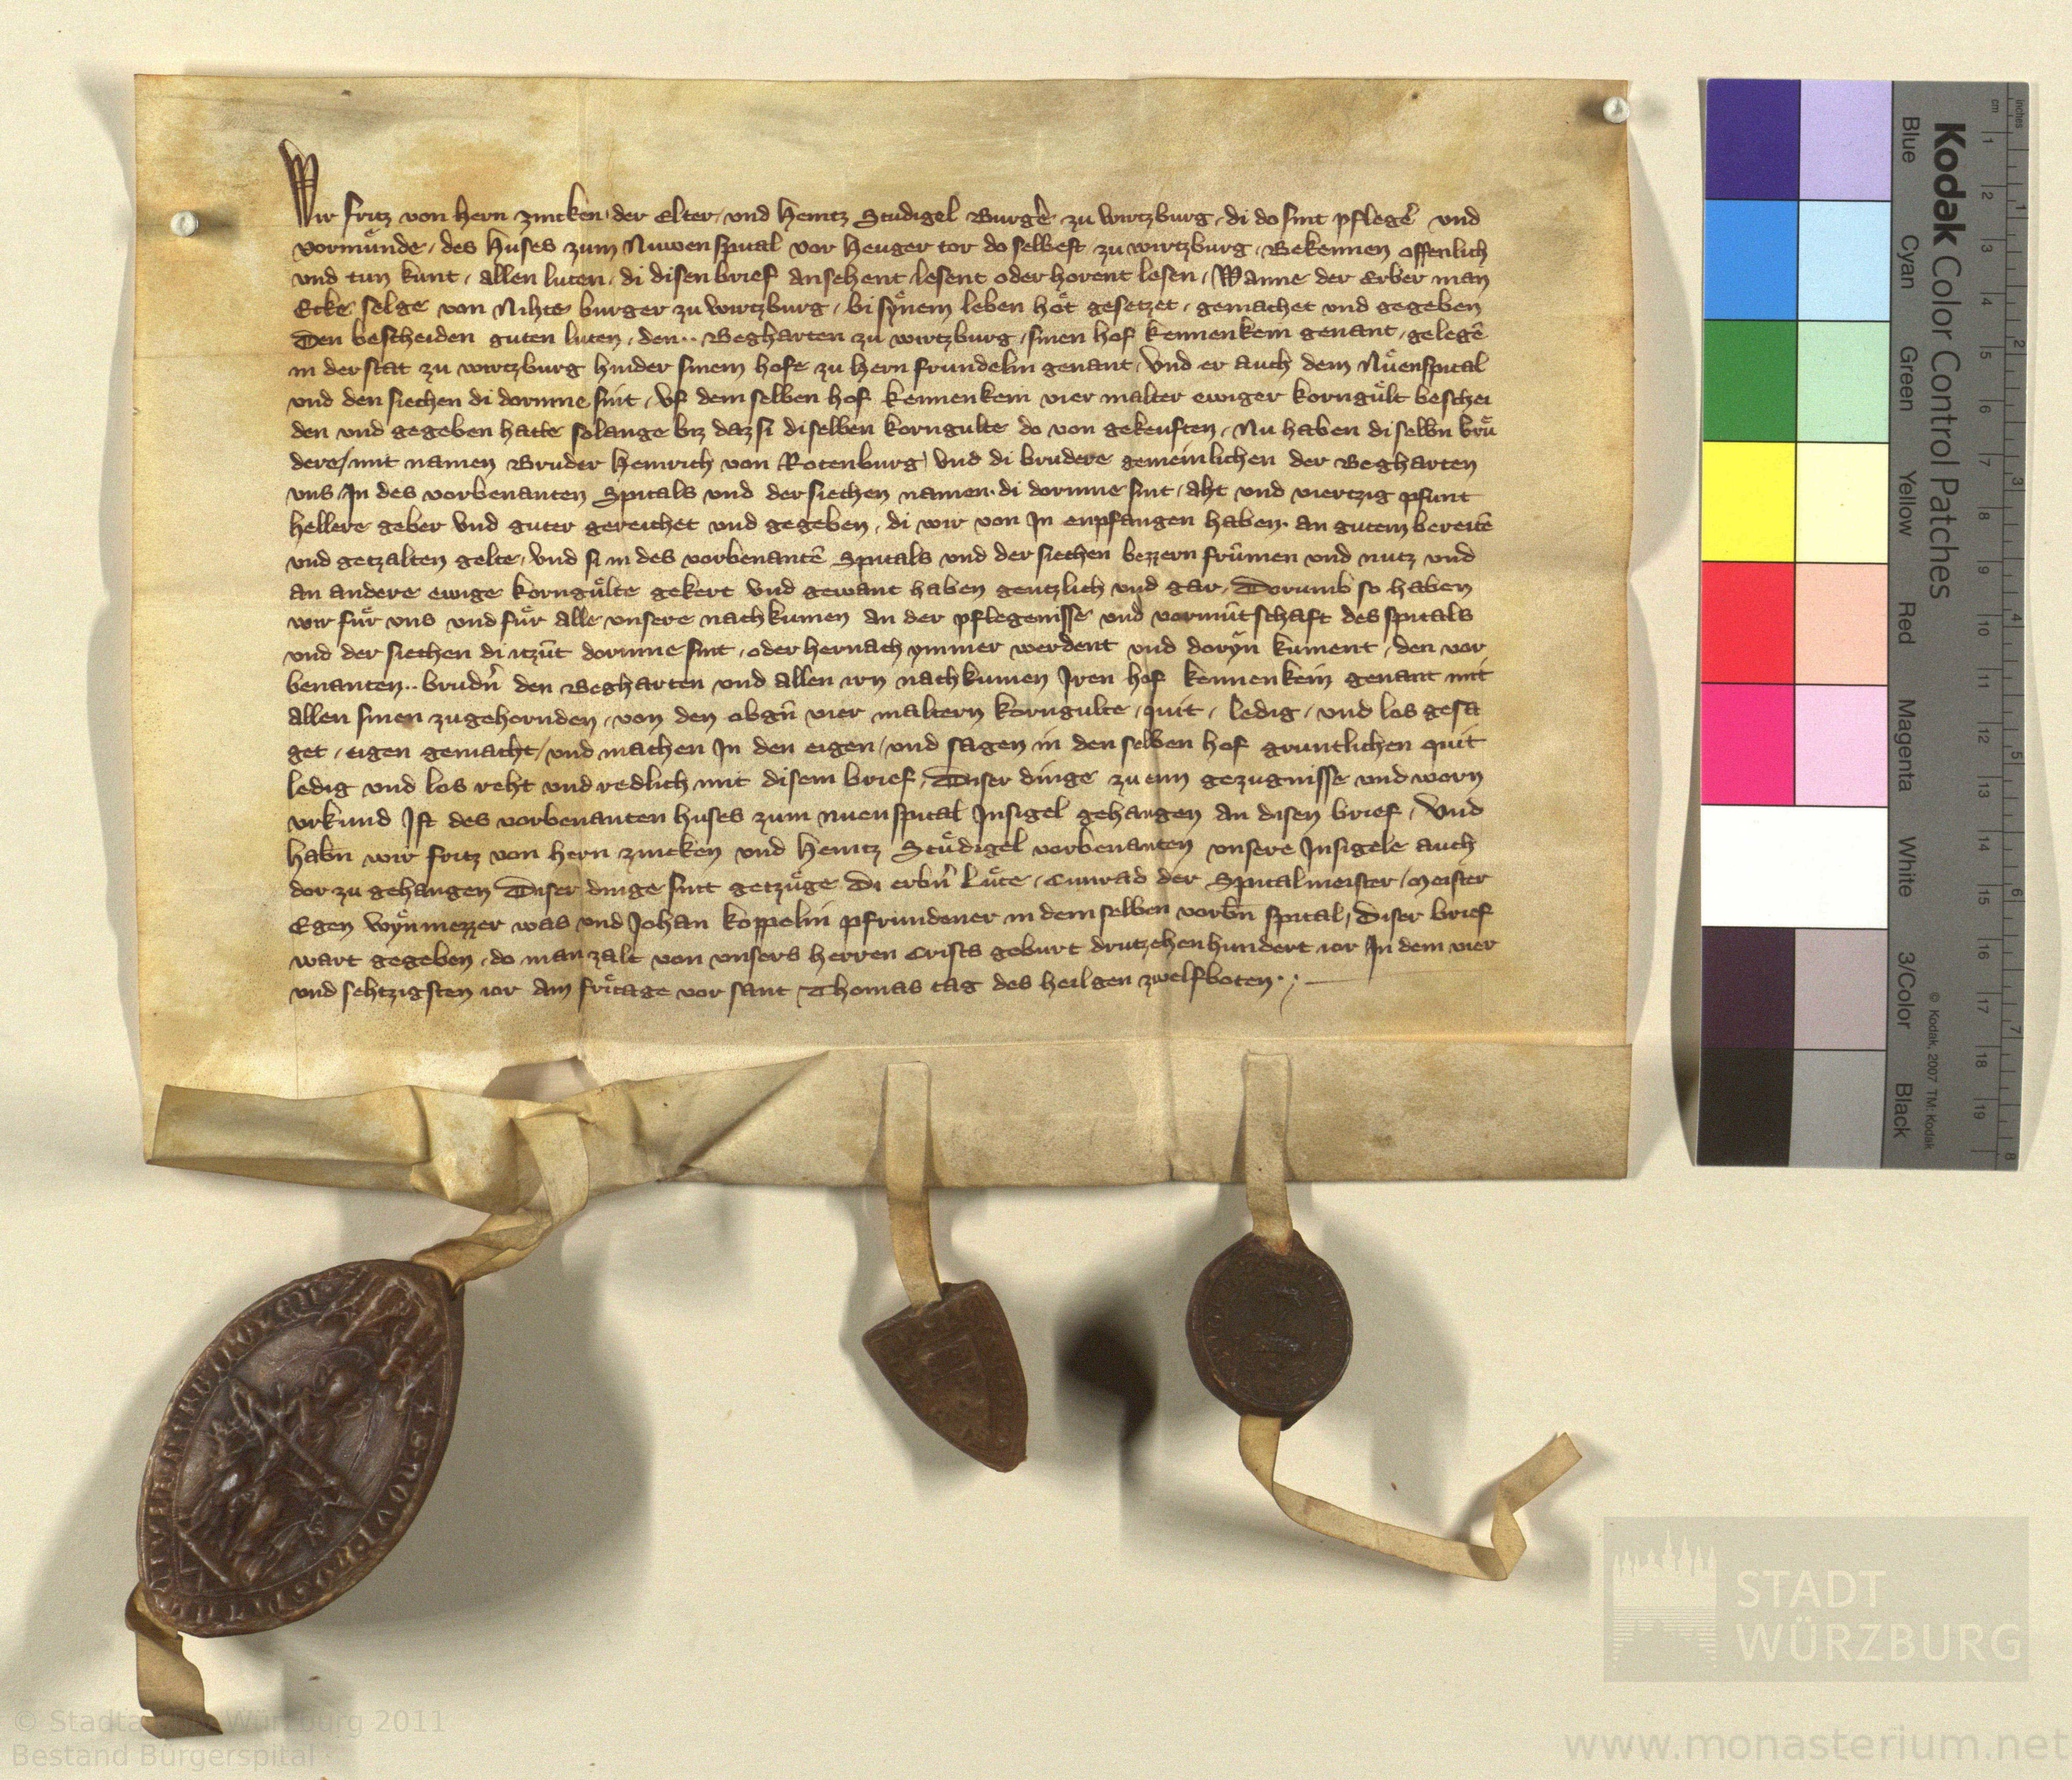 Wir fritz von hern zincken der Elter / und heintz Studigel Burgẻ zu wirtzburg / di do sint pflegẻ und
vormuͤnde / des huses zum Nuwen spital vor heuger tor do selbest zu wirtzburg / Bekennen offenlich
und tun kunt / allen luten / di disen brief ansehent / lesent oder horent lesen / Wanne der Erber man
Ecke selge von Nihte burger zu wirtzburg / bi sẏnem leben hot gesetzet / gemachet und gegeben
Den bescheiden guten luten / den .. Begharten zu wirtzburg / sinen hof kennenkein genant / gelegē
in der stat zu wirtzburg hinder sinem hofe zu hern frundelin genant / Und er auch dem Nuͤenspital
und den siechen di dorinne sint / uf dem selben hof kennenkein vier malter ewiger korngult beschei
den und gegeben hatte solange biz daz si diselben korngulte do von gekeuften / Nu haben di selbn bruͤ
dere / mit namen Bruder heinrich von Rotenburg / Und di brudere gemeinlichen der Begharten
uns / In des vorbenanten Spitals und der siechen namen . di dorinne sint / aht und viertzig pfunt
hellere geber Und guter gereichet und gegeben / di wir von In enpfangen haben . an gutem bereitē
und getzalten gelte / Und si in des vorbenantē Spitals und der siechen bezzern frůmen und nutz und
an andere ewige korngulte gekert Und gewant haben gentzlich und gar / Dorumb so haben
wir fuͤr uns und fuͤr alle unsere nachkumen an der pflegenisse und vormūtschaft des spitals
und der siechen di itzūt dorinne sint / oder hernach ymmer werdent und dorẏn kument / den vor
benanten .. brudn̉ den Begharten und allen irn nachkumen Iren hof kennenkein genant mit
allen sinen zugehornden / von den obgn̄ vier maltern korngulte / quit / ledig / und los gesa
get / eigen gemacht / und machen In den eigen / und sagen in den selben hof gruntlichen quit
ledig und los reht und redlich mit disem brief / Diser dinge zu eim gezugnisse und worn
urkund Ist des vorbenanten huses zum nuenspital Insigel gehangen an disen brief / Und
habn̄ wir fritz von hern zincken und heintz Stuͤdigel vorbenanten unsere Insigele auch
dor zu gehangen Diser dinge sint getzuͤge Di erbn̉ Luͤte / Cunrad der Spitalmeister / meister
Egen wẏnmezzer was und Johan koppelin pfrundener in dem selben vorbn̄ spital / Diser brief
wart gegeben / do man zalt von unsers herren Crists geburt drutzehenhundert ior In dem vier
und sehtzigsten ior Am fritage vor sant Thomas tag des heilgen zwelfboten . ;
Kodak Color Control Patches
© Kodak, 2007 TM: Kodak
Blue Cyan Green Yellow Red Magenta White 3/Color Black
inches 1 2 3 4 5 6 7 8
cm 1 2 3 4 5 6 7 8 9 10 11 12 13 14 15 16 17 18 19
STADT
WÜRZBURG
© Stadtarchiv Würzburg 2011
Bestand Bürgerspital
www.monasterium.net